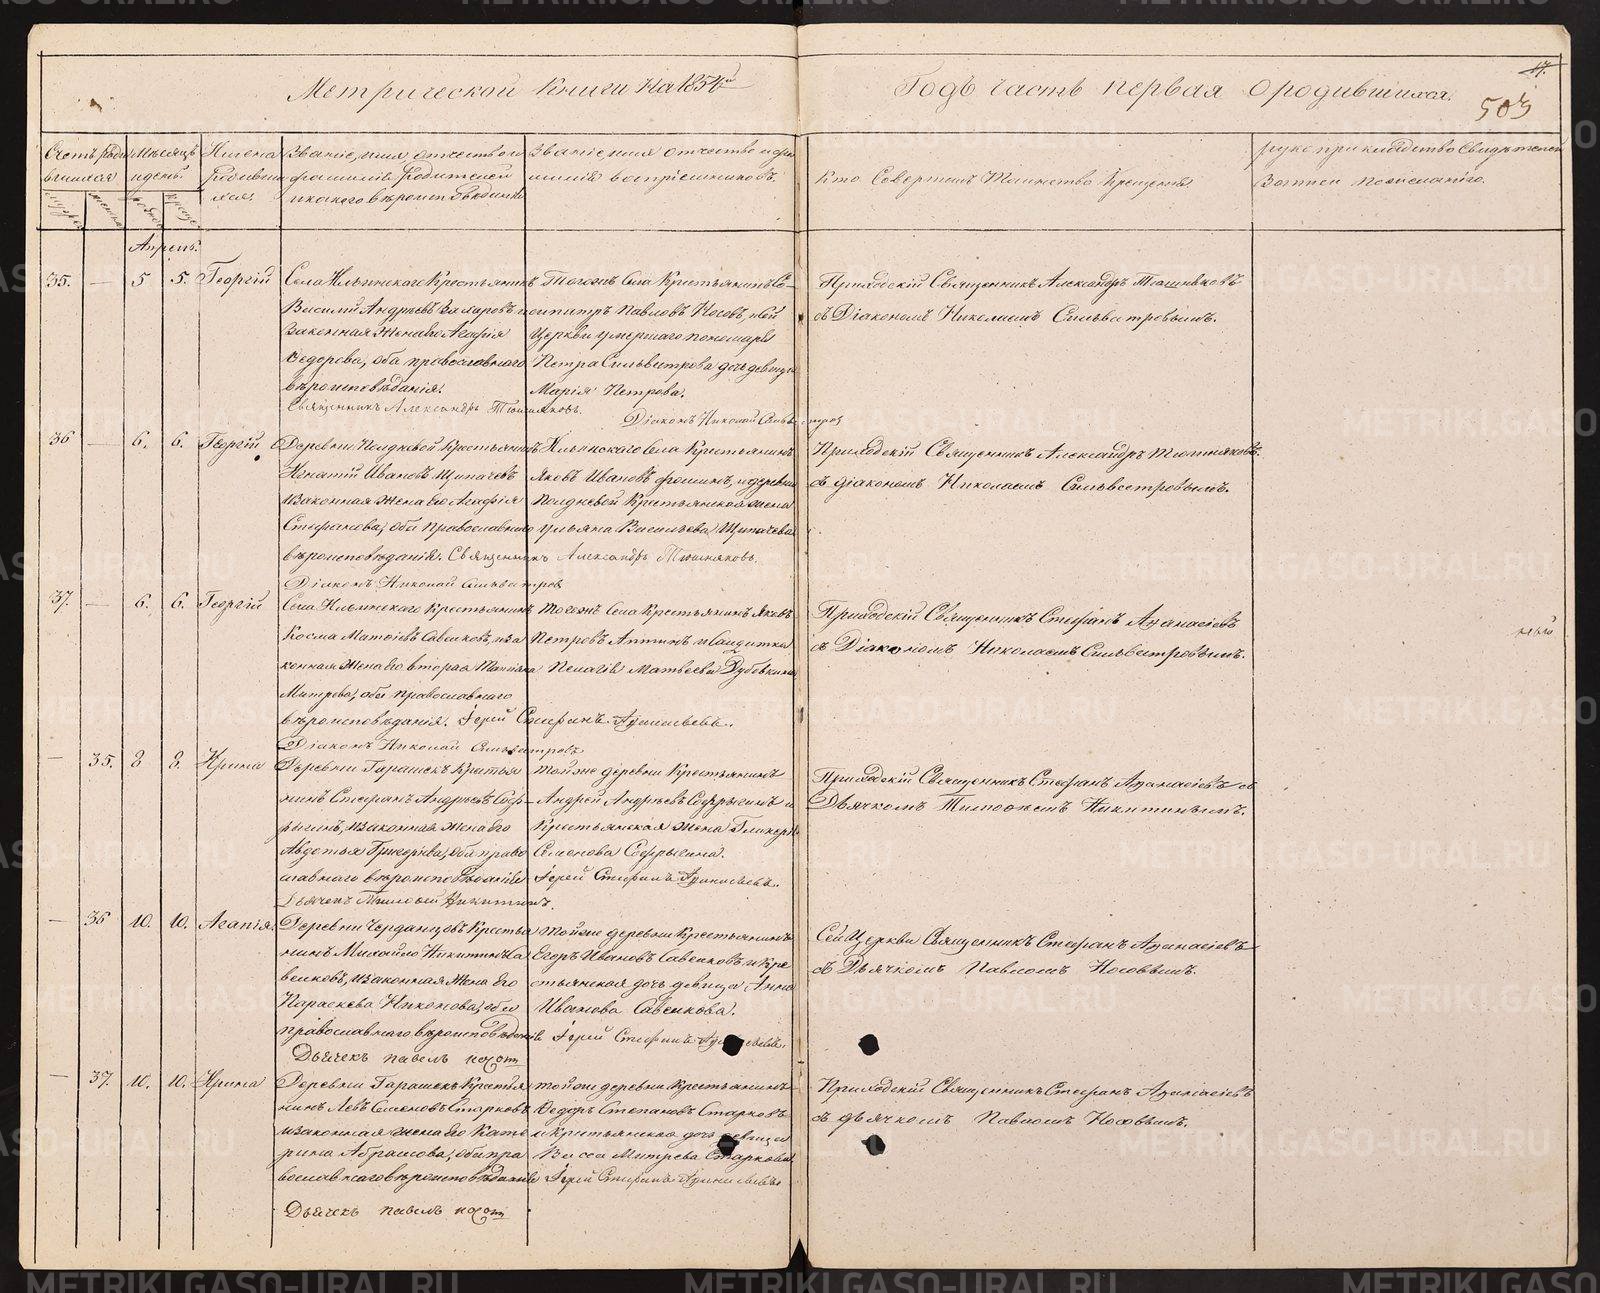 Метрической Книги На 1854й
Годъ часть первая о родившихся.
17.
503
Счетъ роди
вшихся
Мѣсяцъ
и день
Имена
Родивши
хся.
Званіе, имя, отчество и
фамилія Родителей
и какого вѣроисповѣданія
Званіе имя отчество и фа
милія воспріемниковъ.
Кто Совершалъ Таинство Крещенія
рукоприкладство Свидѣтелей
Записи по желанію.
Апрель.
35. — 5 5. Георгій
Села Ильинскаго Крестьянинъ
Василій Андреевъ Захаровъ и
Законная Жена его Агафія
Федорова, оба православнаго
вѣроисповѣданія.
Тогожъ Села Крестьянинъ
Павловъ Носовъ, и сей
Церкви умершаго пономаря
Петра Сильвестрова дочь девица
Марія Петрова.
Священникъ Александръ Тюшняковъ.
Діаконъ Николай Сильвестровъ
Приходскій Священникъ Александръ Тюшняковъ
съ Діакономъ Николаемъ Сильвестровымъ.
36 — 6. 6. Георгій
Деревни Полдневой Крестьянинъ
Игнатій Ивановъ Щипачевъ
и законная жена Его Агафія
Стефанова, оба православнаго
вѣроисповѣданія. Священникъ Александръ Тюшняковъ.
Діаконъ Николай Сильвестровъ
Ильинскаго Села Крестьянинъ
Яковъ Ивановъ, и деревни
Полдневой Крестьянская жена
Ульяна Васильева Щипачева
Приходскій Священникъ Александръ Тюшняковъ
съ діакономъ Николаемъ Сильвестровымъ.
37. — 6. 6. Георгій
Села Ильинскаго Крестьянинъ
Косма Матвіевъ Савенковъ, и за
конная Жена Его вторая Татіана
Митрева, оба православнаго
вѣроисповѣданія. Іерей Стефанъ Аѳанасьевъ.
Діаконъ Николай Сильвестровъ
Тогожъ Села Крестьянинъ Яковъ
Петровъ и Солдатка
Пелагія Матвеева Дубовкина
Приходскій Священникъ Стефанъ Аѳанасіевъ
съ Діакономъ Николаемъ Сильвестровымъ.
— 35. 8 8. Ирина
Деревни Гарашекъ Крестья
нинъ Стефанъ Андреевъ Соф
рыгинъ, и законная Жена Его
Авдотья Григорьева, оба право
славнаго вѣроисповѣданія
Дьячекъ Тимоѳей Никитинъ.
Той же деревни Крестьянинъ
Андрей Андреевъ Софрыгинъ и
Крестьянская жена Гликерія
Семенова Софрыгина.
Іерей Стефанъ Аѳанасьевъ.
Приходскій Священникъ Стефанъ Аѳанасіевъ съ
Дьячкомъ Тимоѳеемъ Никитинымъ.
— 36 10. 10. Агапія.
Деревни Черданцовъ Крестья
нинъ Михайло Никитинъ Са
венковъ, и законная Жена Его
Параскева Никонова, оба
православнаго вѣроисповѣданія
Дьячекъ павелъ носовъ
Той же деревни Крестьянинъ
Егоръ Ивановъ Савенковъ и кре
стьянская дочь девица Анна
Иванова Савенкова.
Іерей Стефанъ Аѳанасьевъ.
Сей Церкви Священникъ Стефанъ Аѳанасіевъ
съ Дьячкомъ Павломъ Носовымъ.
— 37. 10. 10. Ирина
Деревни Гарашекъ Крестья
нинъ Левъ Семеновъ Старковъ,
и законная жена Его Кате
рина Абрамова, оба пра
вославнаго вѣроисповѣданія
Дьячекъ павелъ носовъ
Той же деревни Крестьянинъ
Ѳедоръ Степановъ Старковъ
и крестьянская дочь девица
Васса Митрева Старкова
Іерей Стефанъ Аѳанасьевъ
Приходскій Священникъ Стефанъ Аѳанасіевъ
съ дьячкомъ Павломъ Носовымъ.
METRIKI.GASO-URAL.RU